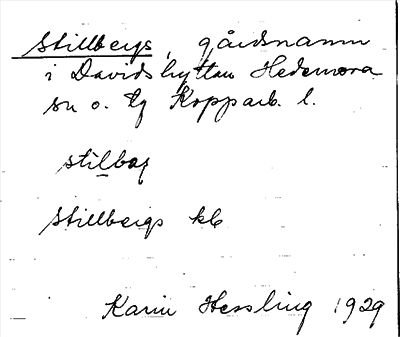 Stillbergs, gårdsnamn
i Davidshyttan Hedemora
sn o. tg Kopparb. l.
stilbaʒ
Stillbergs kb
Karin Hessling 1929